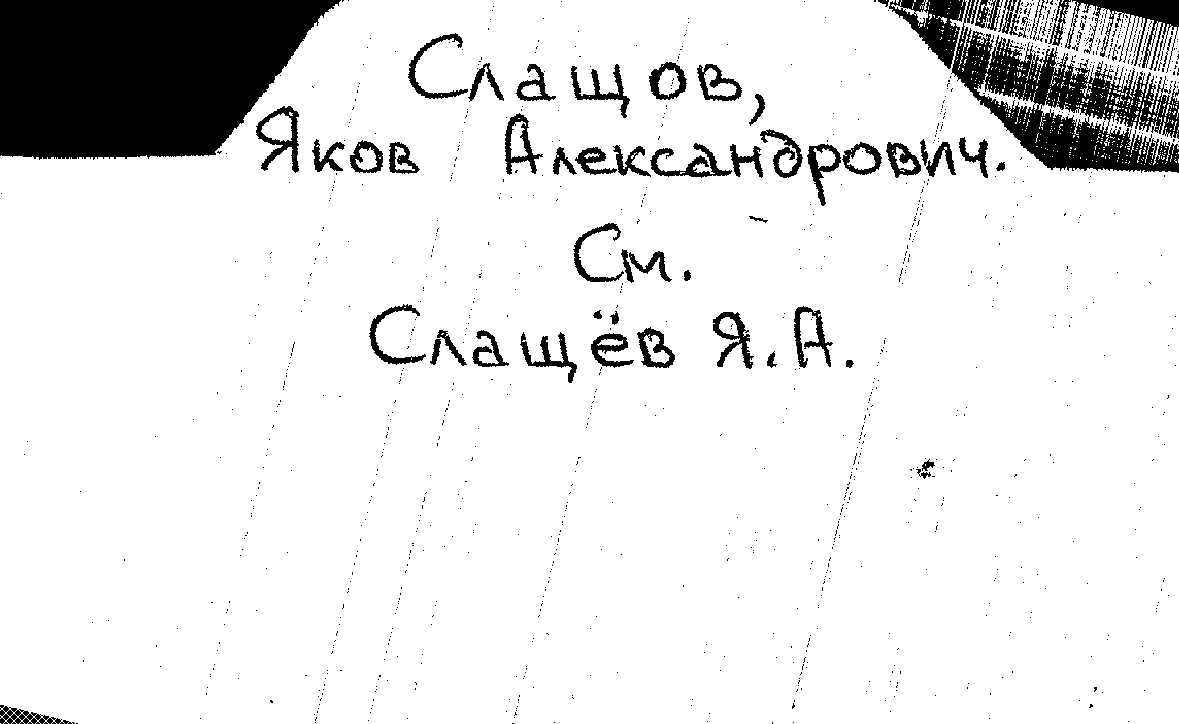 Слащов,
Яков Александрович.
См.
Слащёв Я.А.